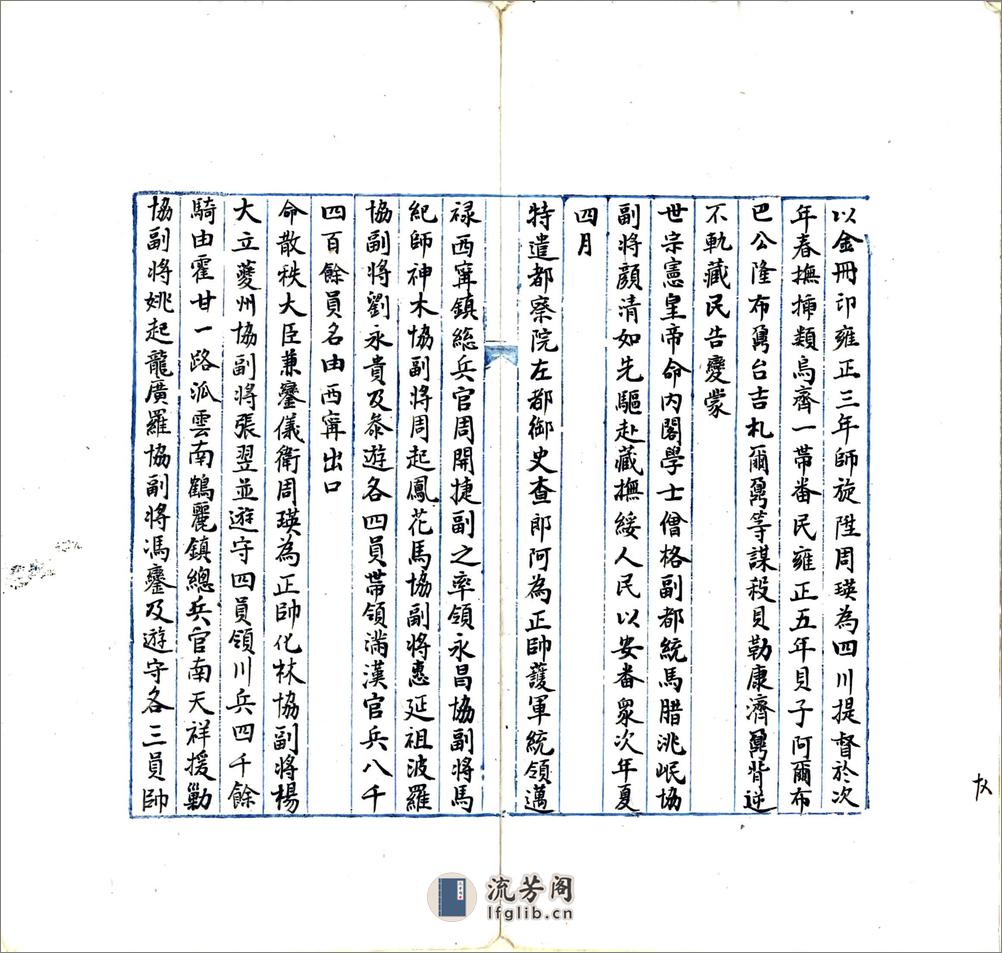 以金冊印雍正三年師旋陞周瑛為四川提督於次
年春撫插類烏齊一帶番民雍正五年貝子阿爾布
巴公隆布鼐台吉札爾鼐等謀殺貝勒康濟鼐背逆
不軌藏民告變蒙
世宗憲皇帝命內閣學士僧格副都統馬腊洮岷協
副將顏清如先驅赴藏撫綏人民以安番眾次年夏
四月
特遣都察院左都御史查郎阿為正帥護軍統領邁
祿西寧鎮総兵官周開捷副之率領永昌協副將馬
紀師神木協副將周起鳳花馬協副將惠延祖波羅
協副將劉永貴及叅遊各四員帶領滿漢官兵八千
四百餘員名由西寧出口
命散秩大臣兼鑾儀衛周瑛為正帥化林協副將楊
大立夔州協副將張翌並遊守四員領川兵四千餘
騎由霍甘一路派雲南鶴麗鎮總兵官南天祥援勦
協副將姚起龍廣羅協副將馮鑾及遊守各三員帥
流芳阁
lfglib.cn